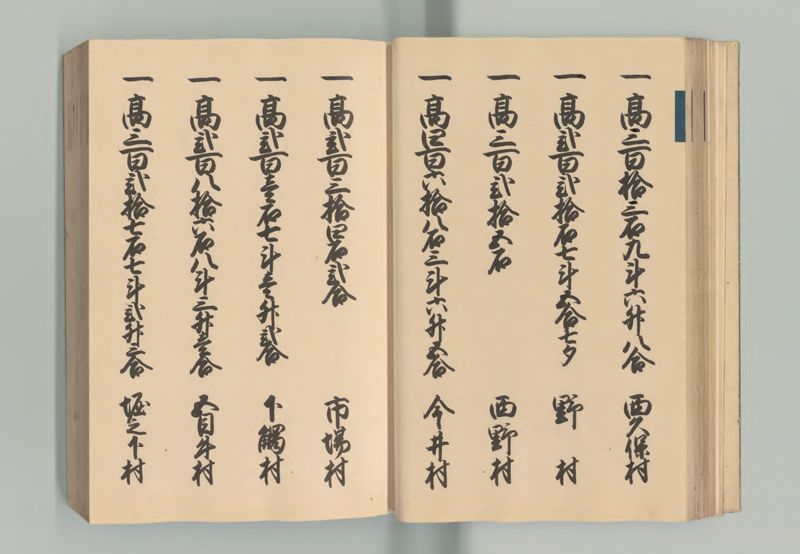 一 高三百拾三石九斗六升八合 西久保村
一 高弐百弐拾石七斗五合七夕 野 村
一 高三百弐拾五石 西野村
一 高四百六拾八石三斗六升五合 今井村
一 高弐百三拾四石弐合 市場村
一 高弐百壱石七斗壱升弐合 下觸村
一 高弐百八拾六石八斗三升壱合 五目牛村
一 高三百弐拾七石七斗弐升三合 堀之下村